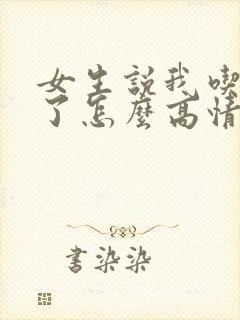 女生説我喫
了怎麼高情
書染染